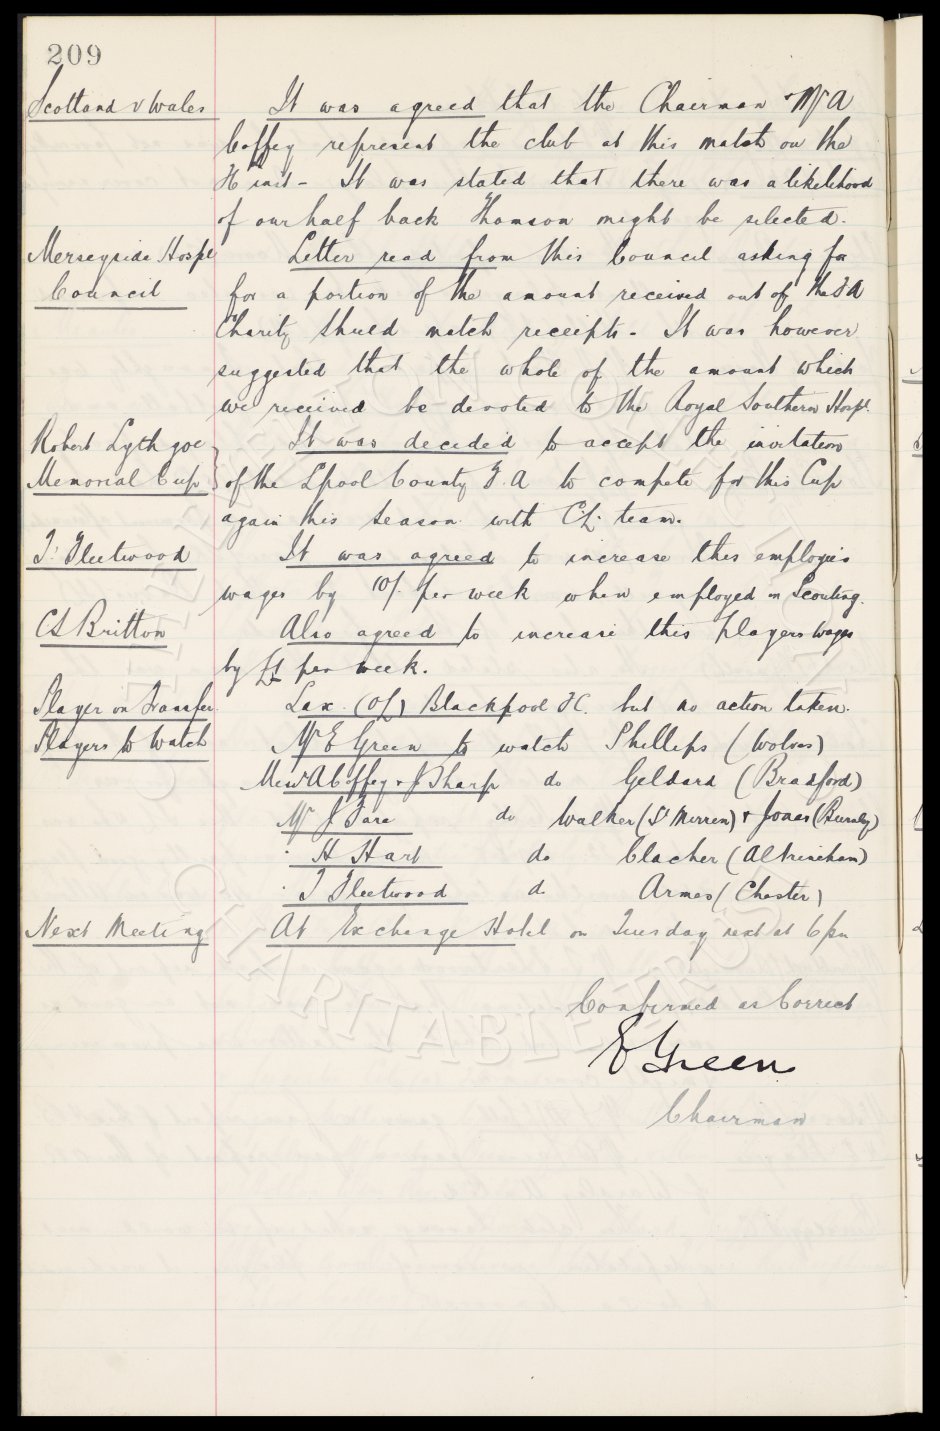 209
Scotland v Wales It was agreed that the Chairman & Mr A
Coffey represent the club at this match on the
It was stated that there was a likelihood
of our half back Thomson might be selected.
Merseyside Hospl Letter read from this Council asking for
Council for a portion of the amount received out of the FA
Charity Shield match receipts - It was however
suggested that the whole of the amount which
we received be devoted to the Royal Southern Hospl.
Robert Lythgoe It was decided to accept the invitation
Memorial Cup of the Lpool County F.A to compete for this Cup
again this season with C.L. team.
T. Fleetwood It was agreed to increase this employees
wages by 10/- per week when employed on Scouting.
CS Britton Also agreed to increase this players wages
by £1 per week.
Player on Transfer Lax (OL) Blackpool FC. but no action taken.
Players to Watch Mr E Green to watch Phillips (Wolves)
Messrs A Coffey & J Sharp do Geldard (Bradford)
Mr J Fare do Walker (St Mirren) & Jones (Burnley)
" H Hart do Clacher (Altrincham)
" T Fleetwood do Armes (Chester)
Next Meeting At Exchange Hotel on Tuesday next at 6 pm
Confirmed as Correct
E Green
Chairman
EVERTON FC
CHARITABLE TRUST